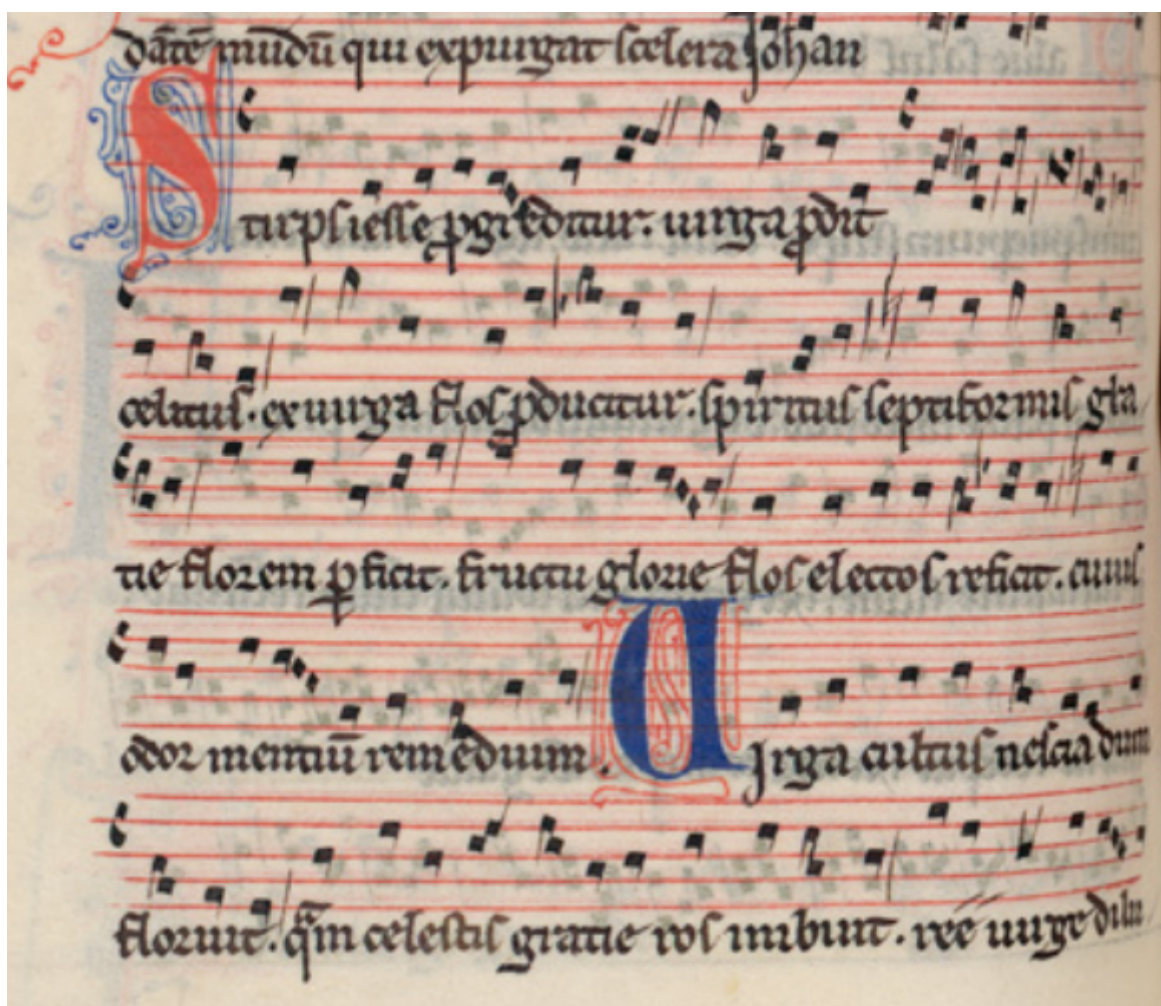 dātē mūdū qui expurgat scelera Johan
Stirps iesse ꝓgreditur. uirga ꝓdit
celitus. ex uirga flos ꝓducitur. spiritus septiformis gra
tie florem ꝑficit. fructu glorie flos electos reficit. cuius
odor mentiū remedium. Uirga cultus nescia dum
floruit. qm celestis gratie ros imbuit. reē uirge dilu